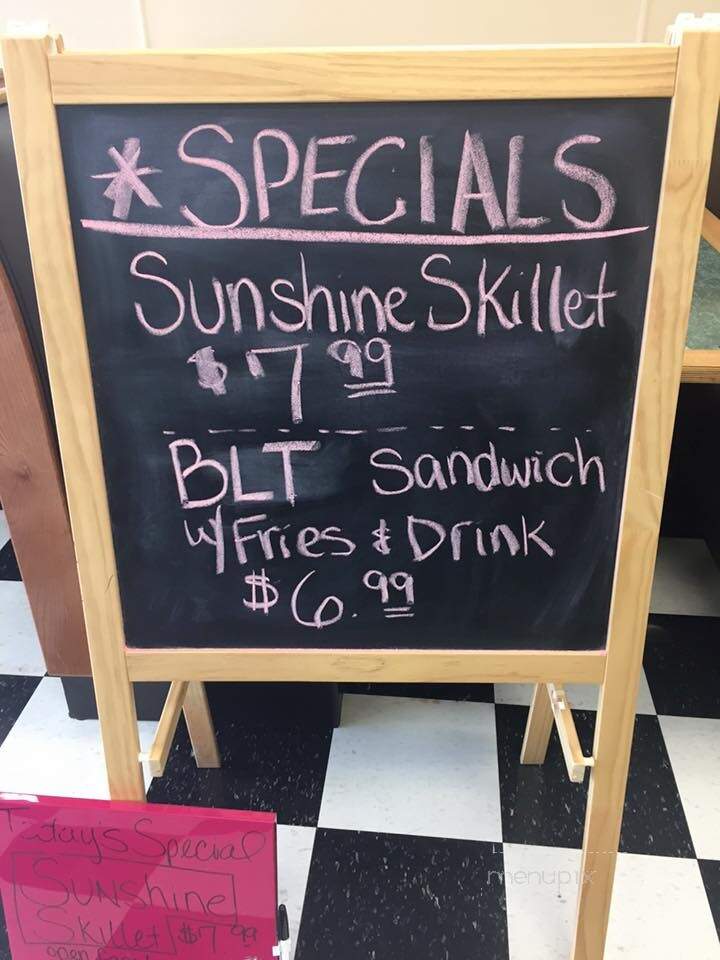 * SPECIALS
Sunshine Skillet
$7 99
BLT Sandwich
w/ Fries & Drink
$6.99
Today's Special
SUNShine
Skillet $7 99
open
menupix